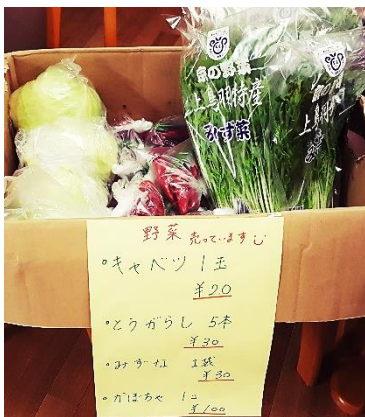 京の野菜
上鳥羽特産
みず菜
上鳥羽特
野菜 売っています
・キャベツ 1玉
¥20
・とうがらし 5本
¥30
・みずな 1袋
¥30
・かぼちゃ 1コ
¥100